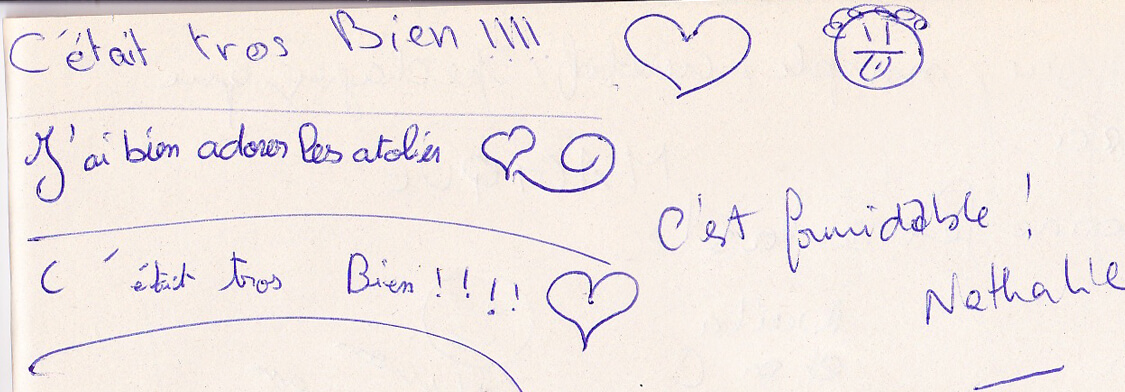 C'était tros Bien !!!!
J'ai bien adorer les atolier
C'était tros Bien !!!!
C'est formidable !
Nathalie